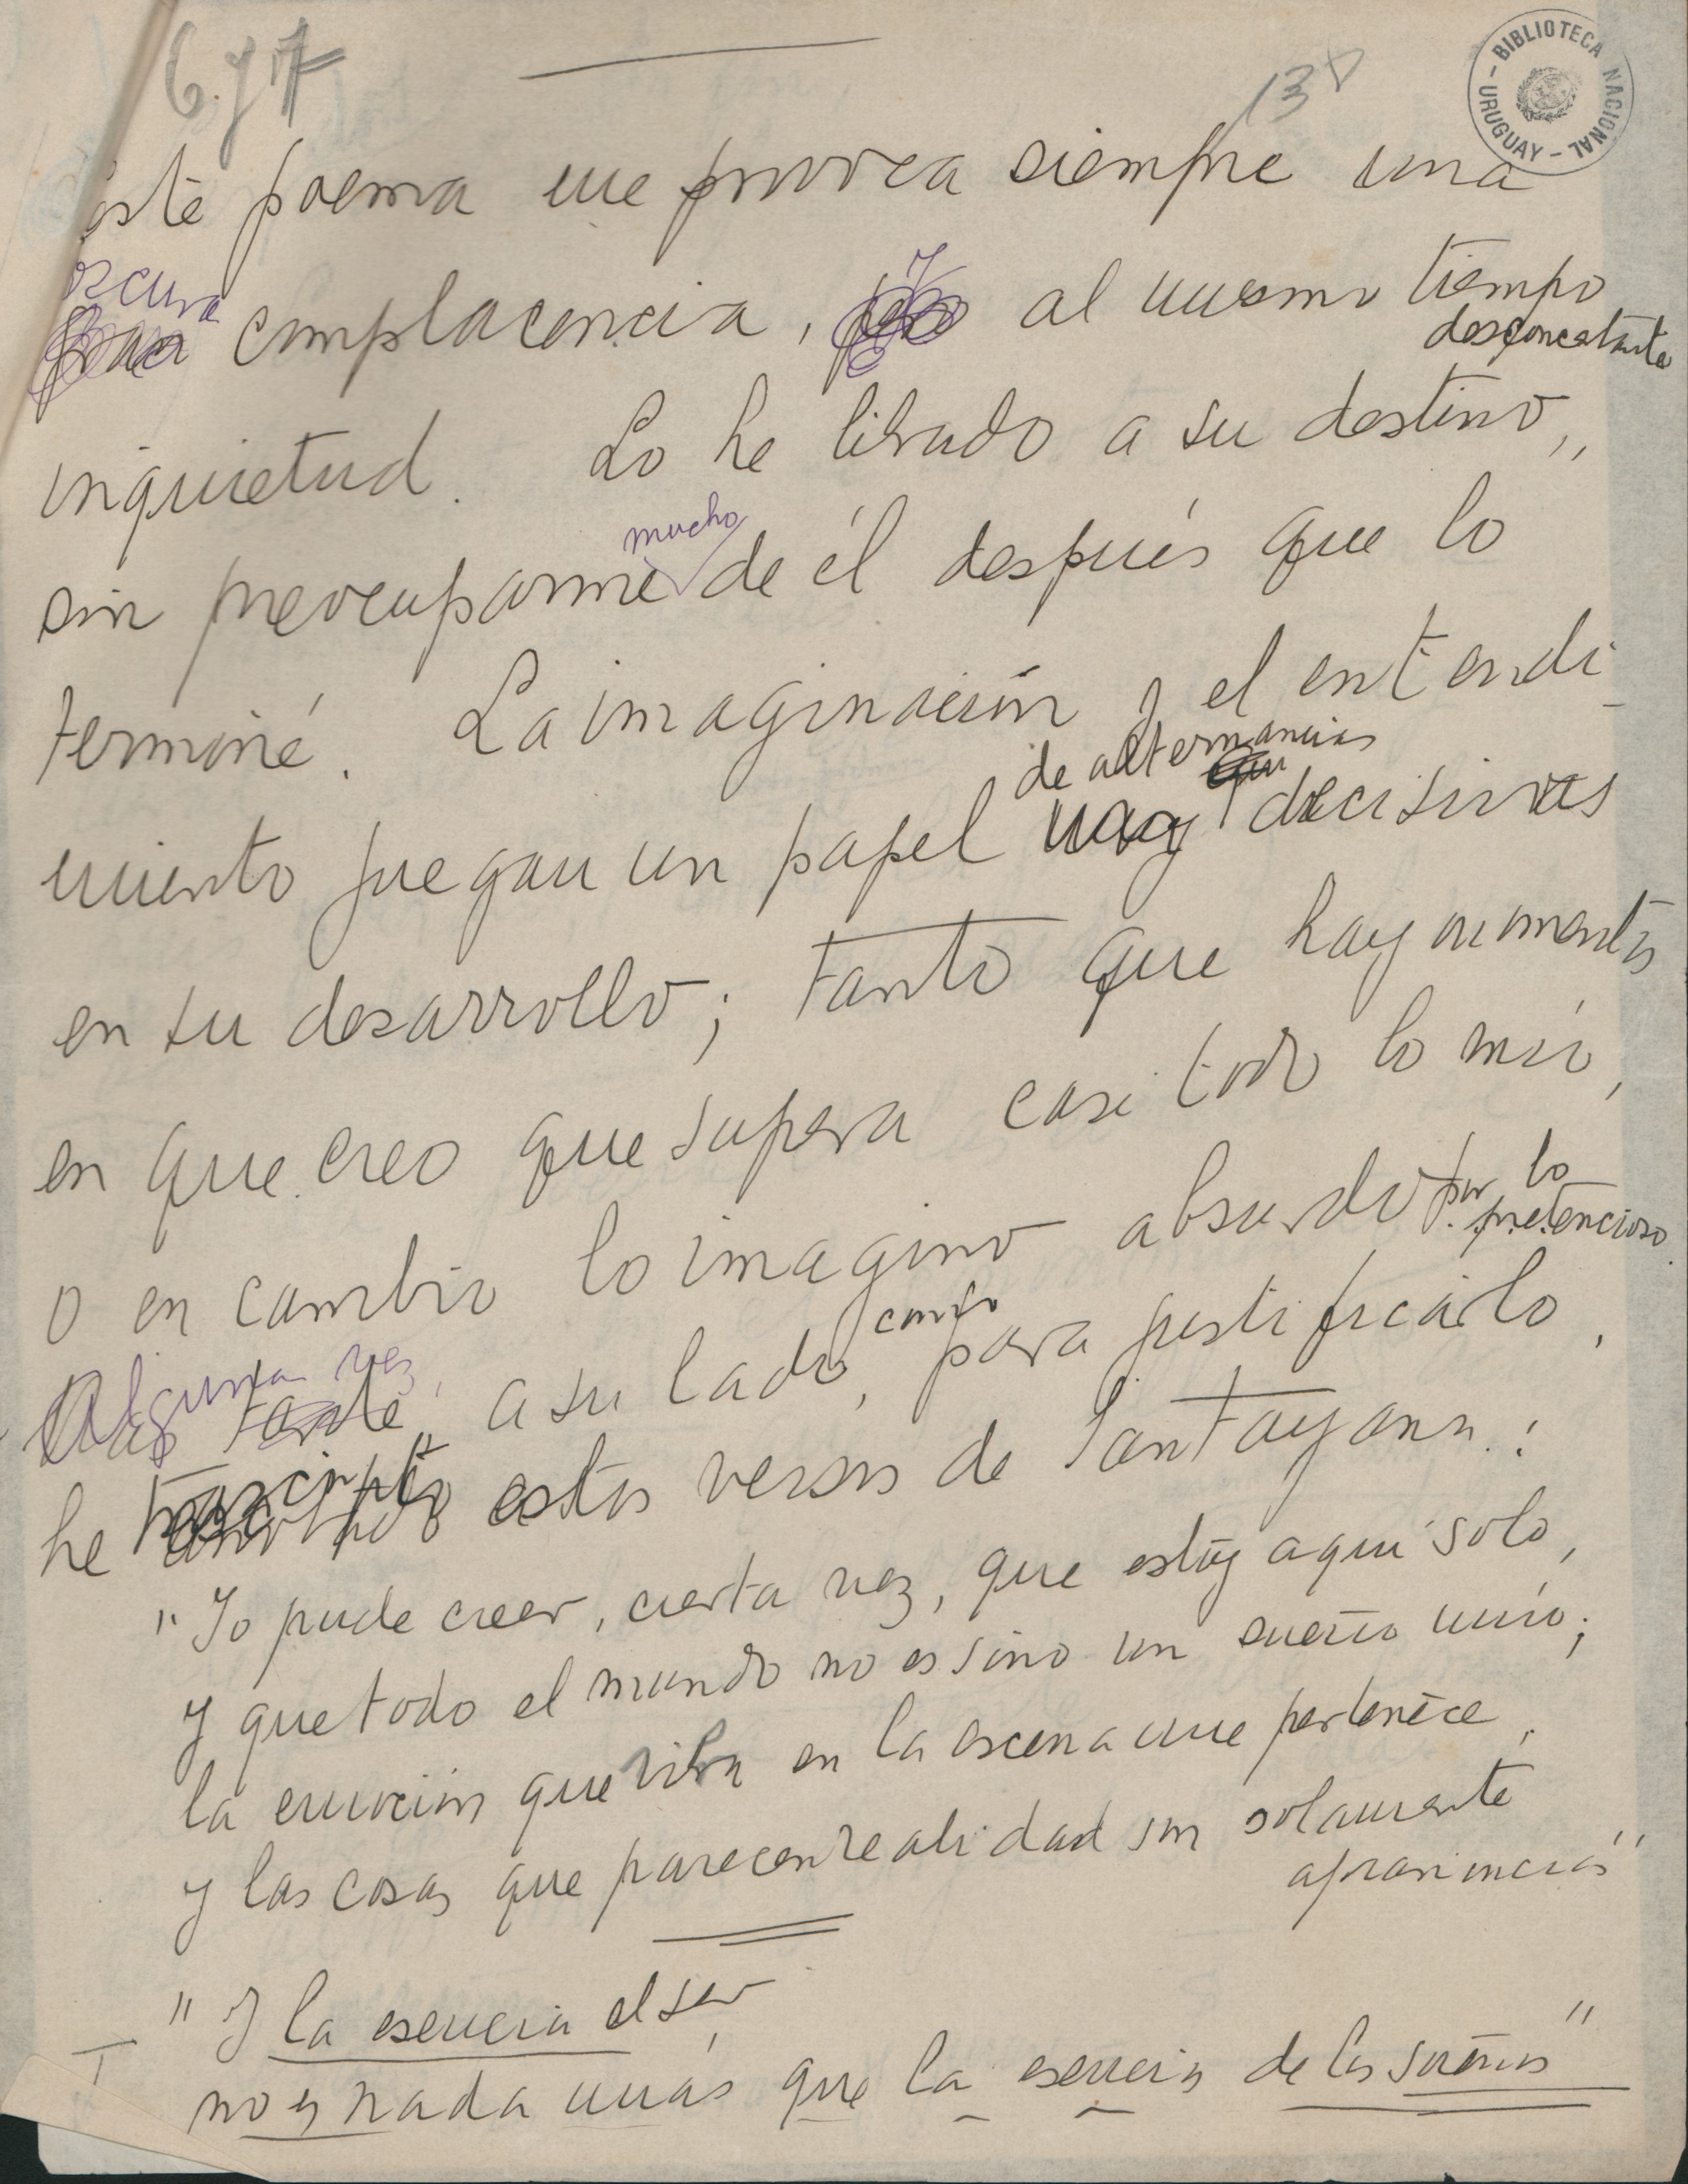 6 y 7
138
BIBLIOTECA NACIONAL - URUGUAY -
Este poema me provoca siempre una
oscura complacencia, y al mismo tiempo
desconcertante
inquietud. Lo he librado a su destino,
sin preocuparme mucho de él después que lo
terminé. La imaginación y el entendi-
miento juegan un papel de alternancias decisivas
en su desarrollo; tanto que hay momentos
en que creo que supera casi todo lo mío,
o en cambio lo imagino absurdo por lo
pretencioso.
Alguna vez, a su lado, como para justificarlo,
he trascripto estos versos de Santayana:
"Yo pude creer, cierta vez, que estoy aquí solo,
y que todo el mundo no es sino un sueño mío;
la emoción que vibra en la escena me pertenece,
y las cosas que parecen realidad son solamente
apariencias"
"Y la esencia del ser,
no es nada más que la esencia de los sueños"